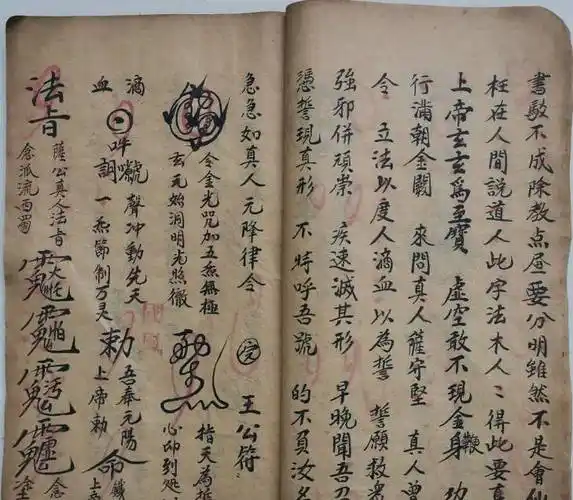 不成除教点
要分明雖然不是會仙
枉在人間說道人此字法木人〻得此要真
上帝玄玄為至寶 虛空敢不現金身 鞭 功
行滿朝金闕 來問真人薩守堅 真人曾
令 立法以度人滴血以為誓 誓願救眾
強邪併頑崇 疾速滅其形 早晚聞吾召
憑誓現真形 不特呼吾號 的不負汝名
急急如真人元降律令 王公符
令金光咒加五炁無極
玄元始洞明光照徹
指天為
心印到処
滴血
呼
聲冲動先天
一炁節制万灵
勅
吾奉元陽
上帝勅
命
法旨
薩公真人法旨
念派流西蜀
念